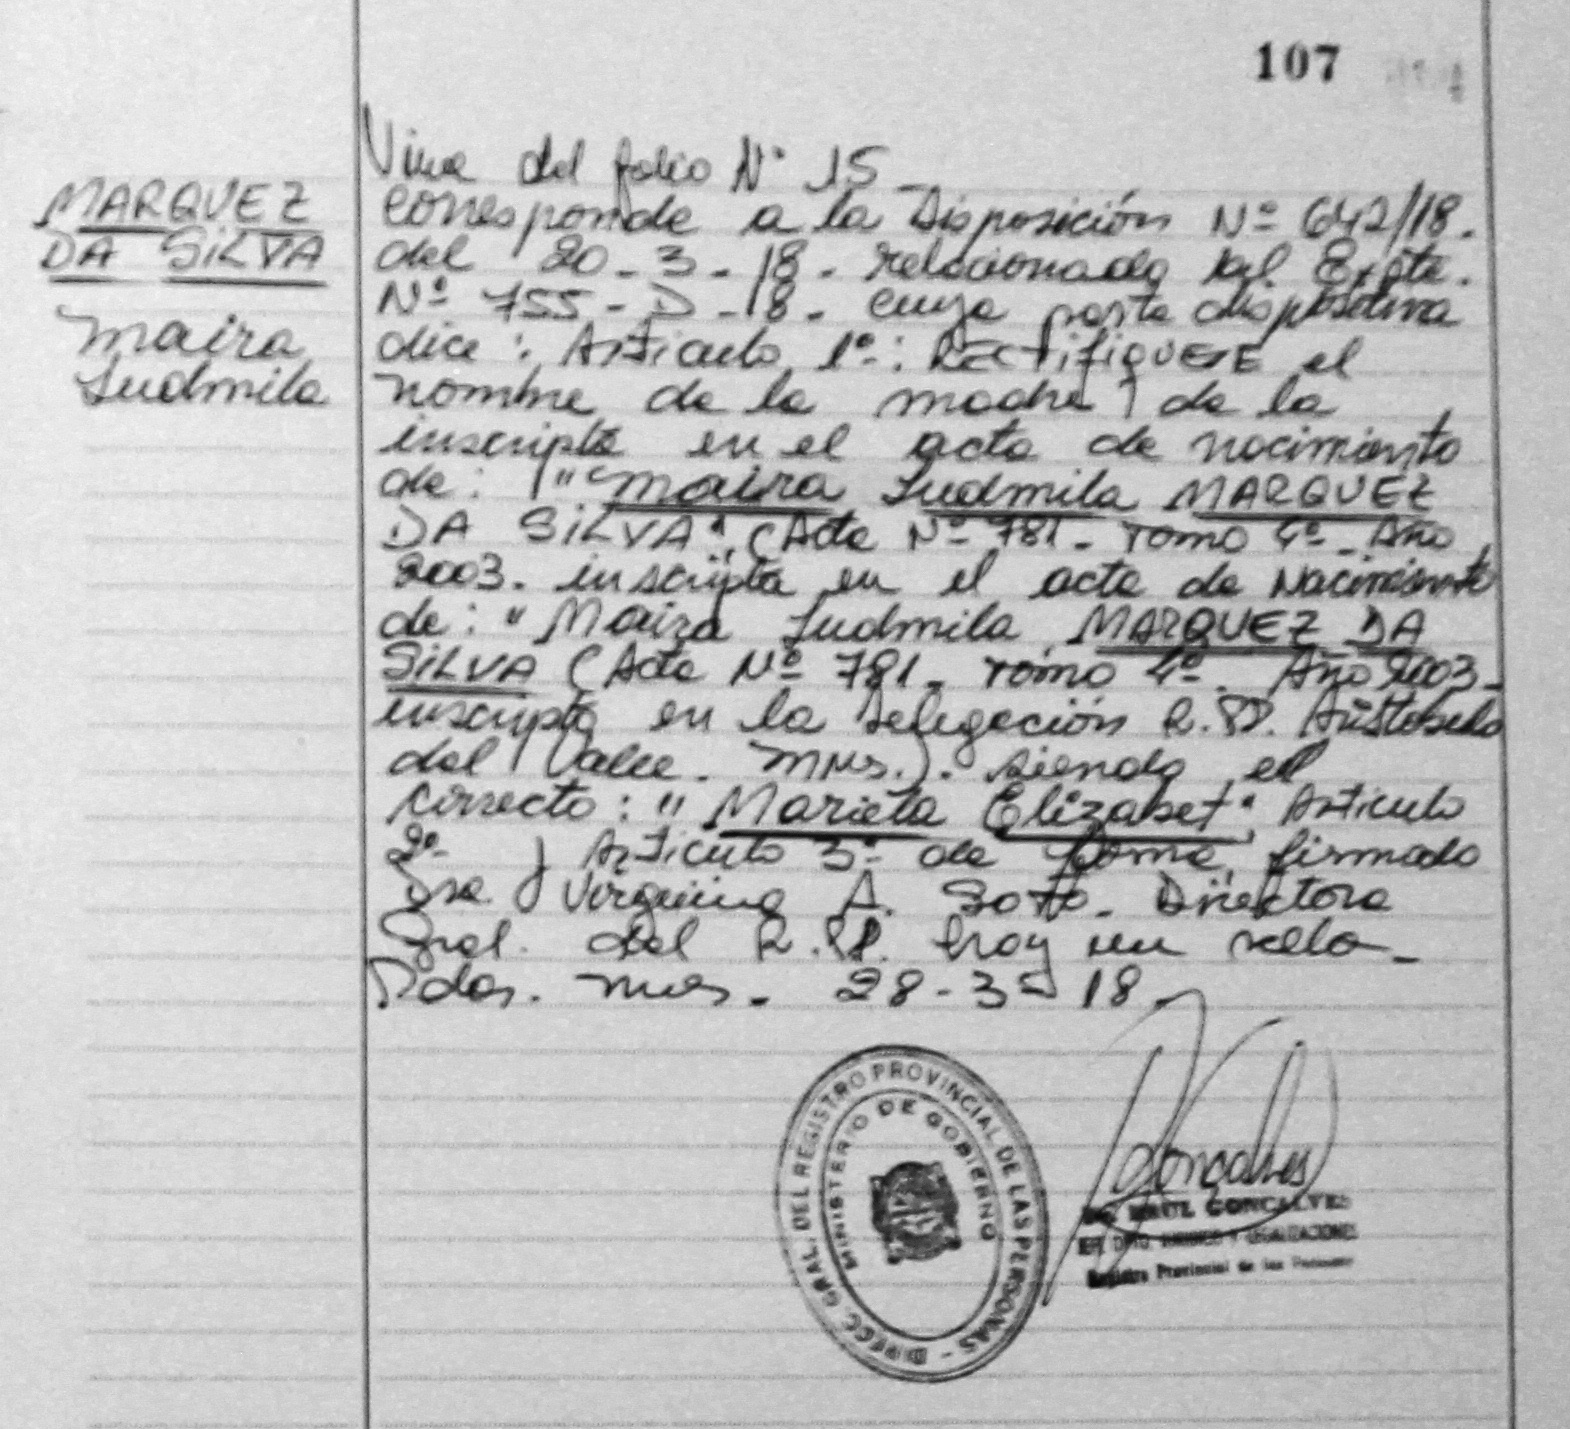 107
MARQUEZ
DA SiLVA
Maira
Ludmila
Viene del folio Nº 15_
Corresponde a la Disposición Nº 642/18.
del 20-3-18. relacionada al Expte.
Nº 755-D-18. cuya parte dispositiva
dice: Articulo 1º: RECTIFIQUESE el
nombre de la madre de la
inscripta en el acta de nacimiento
de: "Maira Ludmila MARQUEZ
DA SiLVA", (Acta Nº 781_ Tomo 4º_ Año
2003. inscripta en el acta de Nacimiento
de: "Maira Ludmila MARQUEZ DA
SiLVA (Acta Nº 781_ Tomo 4º. Año 2003_
inscripta en la Delegación R.P. Aristobulo
del Valle. Mnes.). siendo el
correcto: "Mariela Elizabet" Articulo
2º y Articulo 3º de forma, firmado
Dra. Virginia A. Soto. Directora
Gral. del R.P. hay un sello_
Pdas. Mnes. 28-3-18
DIRECC. GRAL. DEL REGISTRO PROVINCIAL DE LAS PERSONAS -
MINISTERIO DE GOBIERNO
Goncalves
RAUL GONCALVES
Registro Provincial de las Personas